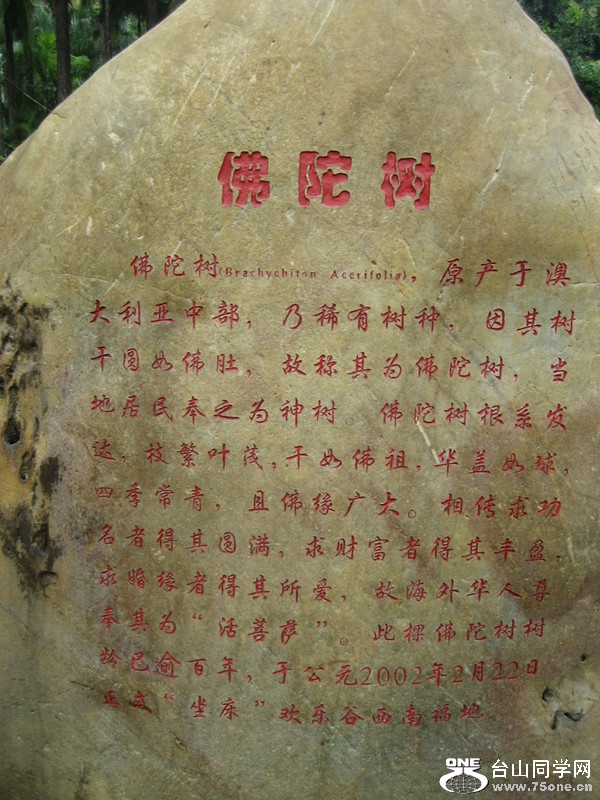 佛陀树
佛陀树(Brachychiton Acerifolia)，原产于澳
大利亚中部，乃稀有树种，因其树
干圆如佛肚，故称其为佛陀树，当
地居民奉之为神树。佛陀树根系发
达，枝繁叶茂，干如佛祖，华盖如球，
四季常青，且佛缘广大。相传求功
名者得其圆满，求财富者得其丰盈，
求婚缘者得其所爱，故海外华人尊
奉其为“活菩萨”。此棵佛陀树树
龄已逾百年，于公元2002年2月22日
正式“坐床”欢乐谷西南福地
ONE 台山同学网
www.75one.cn